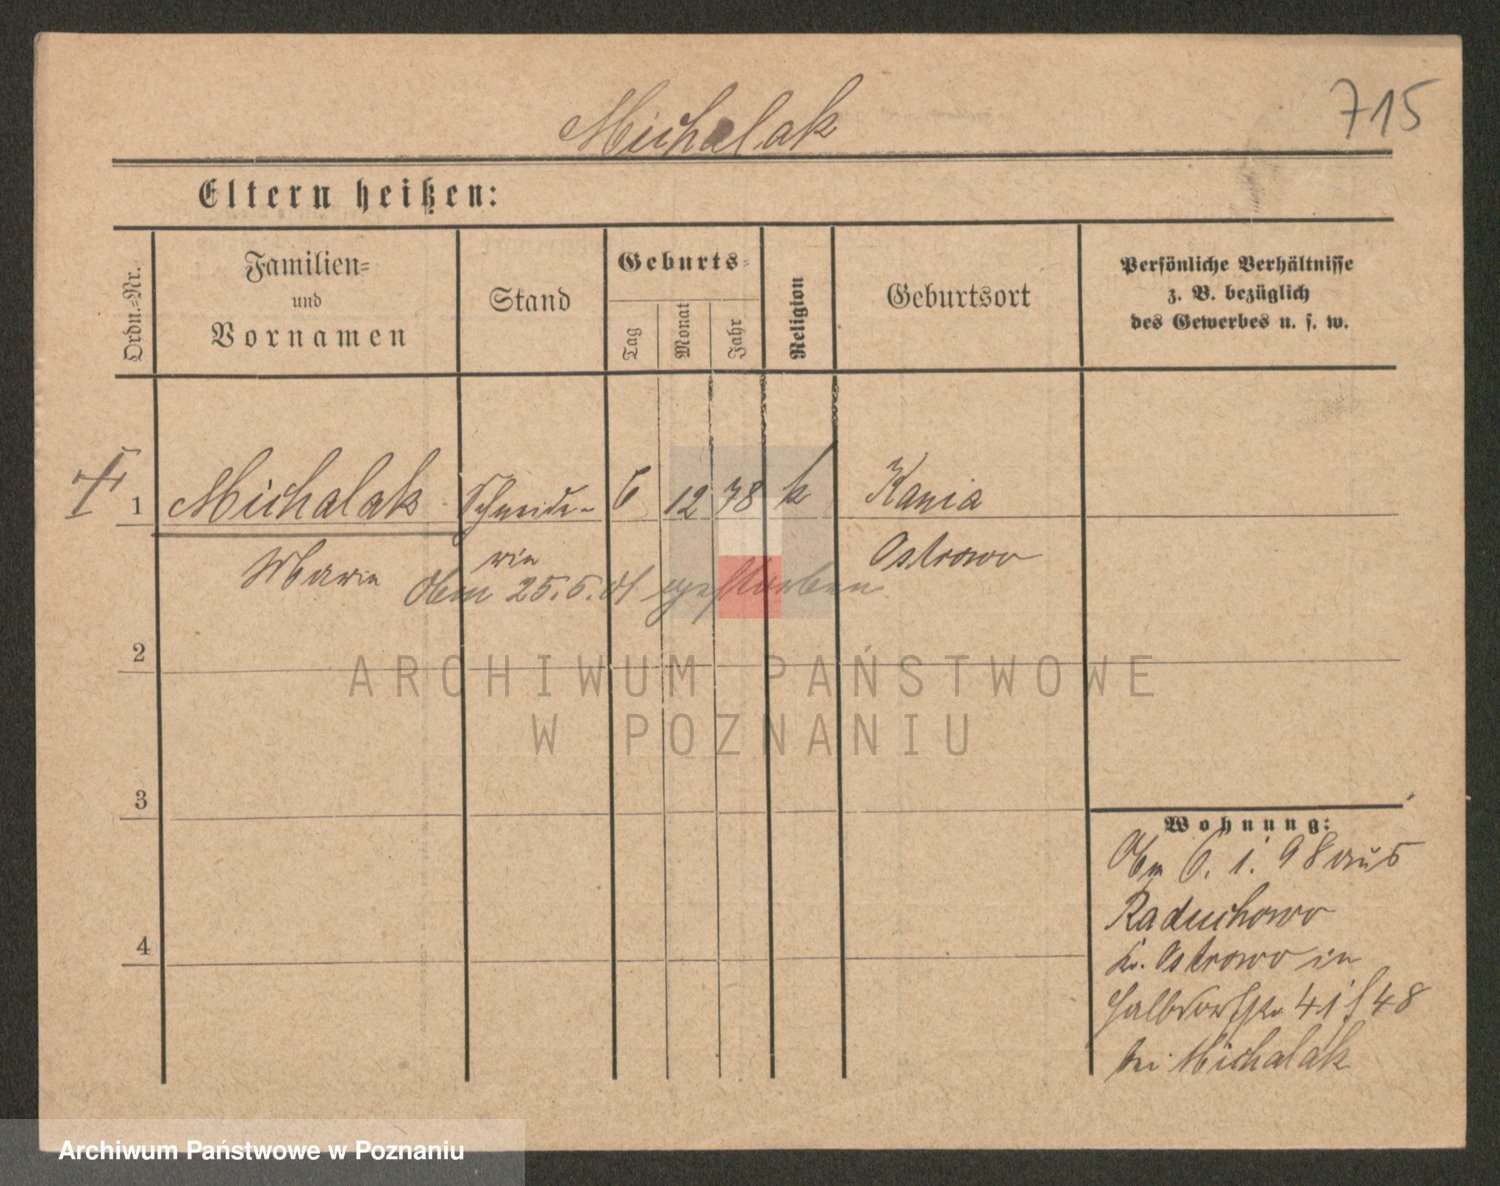 Michalak
715
Eltern heißen:
Ordn.-Nr.
Familien-
und
Vornamen
Stand
Geburts-
Tag
Monat
Jahr
Religion
Geburtsort
Persönliche Verhältnisse
z. B. bezüglich
des Gewerbes u. s. w.
1 Michalak Schneide- 6 12 78 k Kania
Marie rin Ostrowo
25.5.01 gestorben
2
ARCHIWUM PAŃSTWOWE
W POZNANIU
3
4
Wohnung:
6. 1. 98 aus
Raduchowo
Kr. Ostrowo in
Halbdorfstr 41 48
bei Michalak
Archiwum Państwowe w Poznaniu